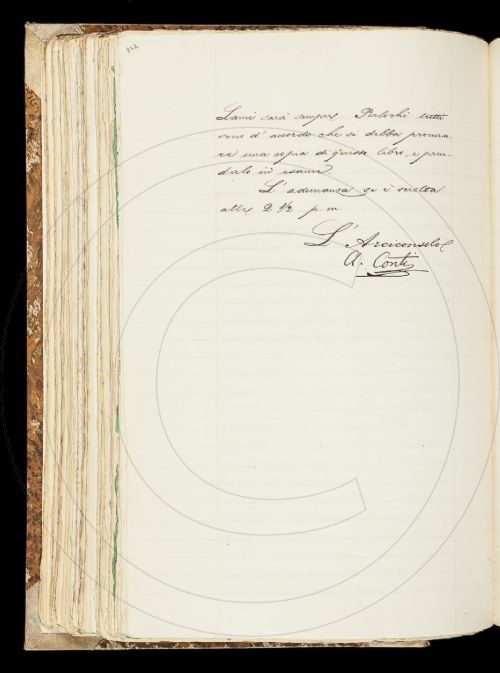 Lami sarà sempre. Perlochè tutti
sono d'accordo che si debba procura-
re una copia di questo libro, e pren-
derlo in esame.
L'adunanza si è sciolta
alle 2 1/2 p. m.
L'Arciconsolo
A. Conti